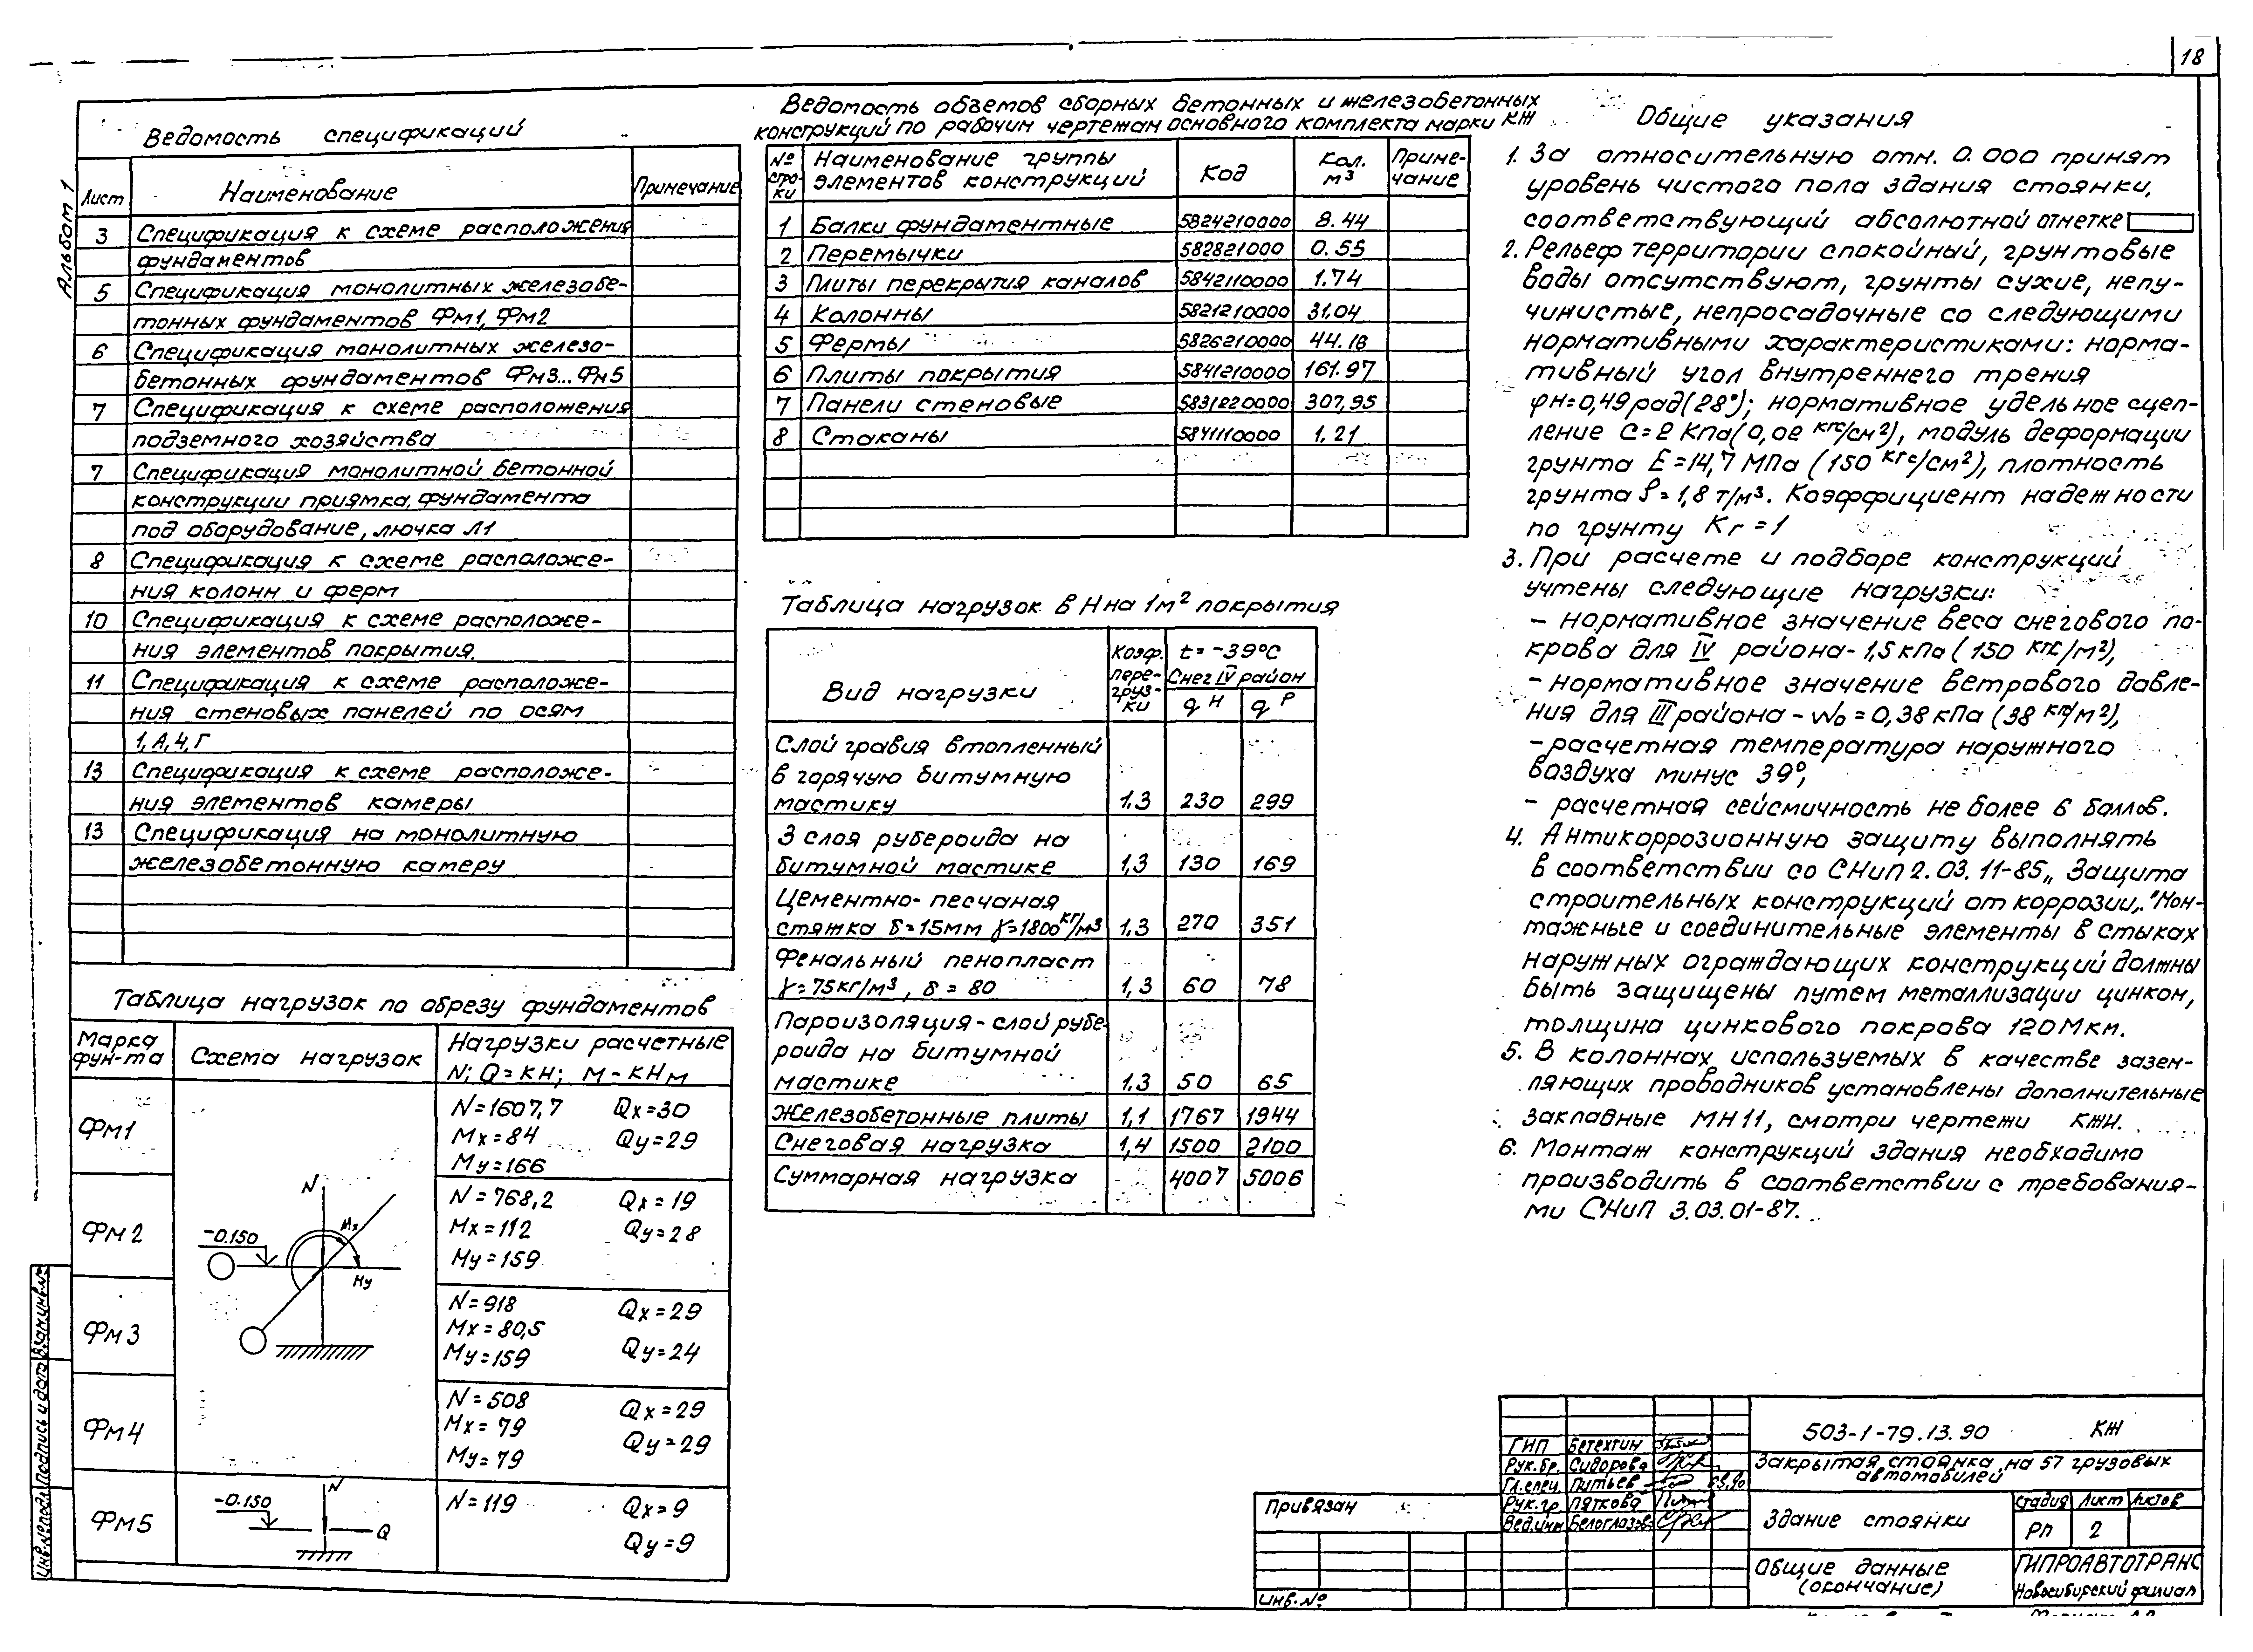 18
Альбом 1
Ведомость спецификаций
Лист Наименование Примечание
3 Спецификация к схеме расположения
фундаментов
5 Спецификация монолитных железобе-
тонных фундаментов Фм1, Фм2
6 Спецификация монолитных железо-
бетонных фундаментов Фм3...Фм5
7 Спецификация к схеме расположения
подземного хозяйства
7 Спецификация монолитной бетонной
конструкции приямка, фундамента
под оборудование, лючка Л1
8 Спецификация к схеме расположе-
ния колонн и ферм
10 Спецификация к схеме расположе-
ния элементов покрытия.
11 Спецификация к схеме расположе-
ния стеновых панелей по осям
1, А, 4, Г
13 Спецификация к схеме расположе-
ния элементов камеры
13 Спецификация на монолитную
железобетонную камеру
Таблица нагрузок по обрезу фундаментов
Марка фун-та Схема нагрузок Нагрузки расчетные
N; Q = КН; М - КНм
Фм1 N=1607,7 Qx=30
Mx=84 Qy=29
My=166
Фм2 N=768,2 Qx=19
Mx=112 Qy=28
My=159
Фм3 N=918 Qx=29
Mx=80,5
My=159 Qy=24
Фм4 N=508 Qx=29
Mx=79 Qy=29
My=79
Фм5 N=119 Qx=9
Qy=9
N
Mx
-0.150
My
N
-0.150
Q
Ведомость обземов сборных бетонных и железобетонных
конструкций по рабочим чертежам основного комплекта марки КЖ
№ стро-ки Наименование группы элементов конструкций Код Кол. м³ Приме-чание
1 Балки фундаментные 5824210000 8.44
2 Перемычки 582821000 0.55
3 Плиты перекрытия каналов 5842110000 1.74
4 Колонны 5821210000 31.04
5 Фермы 5826210000 44.16
6 Плиты покрытия 5841210000 161.97
7 Панели стеновые 5831220000 307,95
8 Стаканы 5841110000 1.21
Таблица нагрузок в Н на 1м² покрытия
Вид нагрузки Коэф. пере-груз-ки t= -39°С
Снег IV район
qᴴ qᴾ
Слой гравия втопленный
в горячую битумную
мастику 1.3 230 299
3 слоя рубероида на
битумной мастике 1,3 130 169
Цементно-песчаная
стяжка δ=15мм γ=1800кг/м³ 1,3 270 351
Фенальный пенопласт
γ=75кг/м³, δ = 80 1,3 60 78
Пароизоляция-слой рубе-
роида на битумной
мастике 1.3 50 65
Железобетонные плиты 1,1 1767 1944
Снеговая нагрузка 1,4 1500 2100
Суммарная нагрузка 4007 5006
Общие указания
1. За относительную отм. 0.000 принят
уровень чистого пола здания стоянки,
соответствующий абсолютной отметке
2. Рельеф территории спокойный, грунтовые
воды отсутствуют, грунты сухие, непу-
чинистые, непросадочные со следующими
нормативными характеристиками: норма-
тивный угол внутреннего трения
φн=0,49рад(28°); нормативное удельное сцеп-
ление С=2 Кпа(0,02 кгс/см²), модуль деформации
грунта Е=14,7 МПа (150 кгс/см²), плотность
грунта ρ=1,8 т/м³. Коэффициент надежности
по грунту Кг=1
3. При расчете и подборе конструкций
учтены следующие нагрузки:
- нормативное значение веса снегового по-
крова для IV района-1,5кПа (150 кгс/м²),
- нормативное значение ветрового давле-
ния для III района - Wо=0,38кПа (38 кг/м²),
- расчетная температура наружного
воздуха минус 39°,
- расчетная сейсмичность не более 6 баллов.
4. Антикоррозионную защиту выполнять
в соответствии со СНиП 2.03.11-85 „Защита
строительных конструкций от коррозии„." Мон-
тажные и соединительные элементы в стыках
наружных ограждающих конструкций должны
быть защищены путем металлизации цинком,
толщина цинкового покрова 120Мкм.
5. В колоннах, используемых в качестве зазем-
ляющих проводников установлены дополнительные
закладные МН11, смотри чертежи КЖИ.
6. Монтаж конструкций здания необходимо
производить в соответствии с требования-
ми СНиП 3.03.01-87.
ГИП Бетехтин
Рук.бр. Сидорова
Гл.спец. Питьев
Рук.гр. Пяткова
Вед.инж Белоглазов
503-1-79.13.90 КЖ
Закрытая стоянка на 57 грузовых
автомобилей
Здание стоянки
Стадия Лист Листов
РП 2
Общие данные
(окончание)
ГИПРОАВТОТРАНС
Новосибирский филиал
Привязан
Инв.№
Инв.№подл. Подпись и дата Взам.инв.№